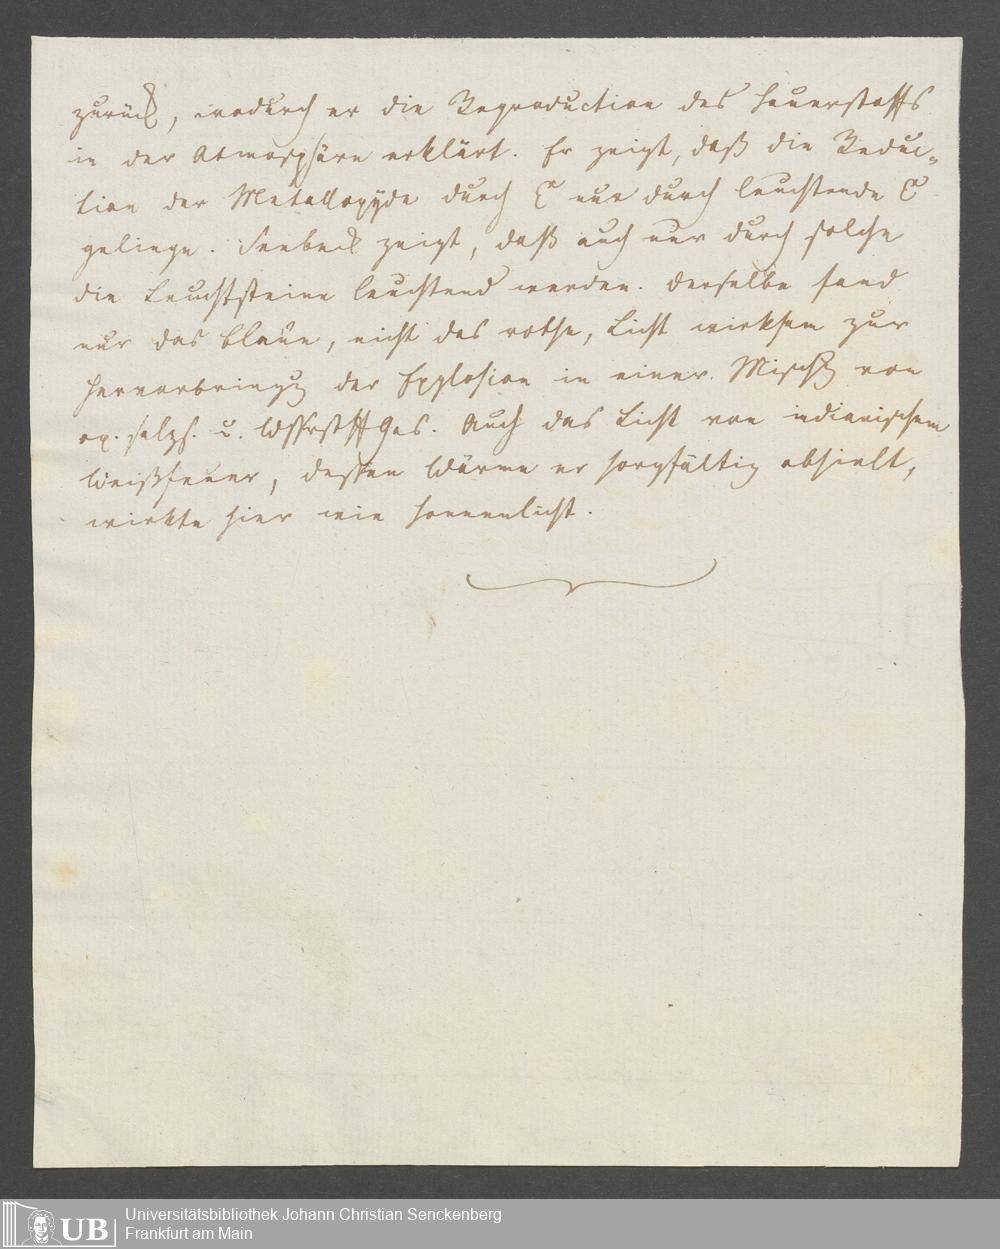 zurück, wodurch er die Reproduction des Sauerstoffs
in der Atmosphäre erklärt. Er zeigt, daß die Reduc-
tion der Metalloxyde durch nur durch leuchtende
gelinge. Seebeck zeigt, daß auch nur durch solche
die Leuchtsteine leuchtend werden. Derselbe fand
nur das blaue, nicht das rothe, Licht wirksam zur
Hervorbringg der Explosion in einer Mischg von
ox. salzs. u. Wssrstff Gas. Auch das Licht von indianischem
Weißfeuer, dessen Wärme er sorgfältig abhielt,
wirkte hier wie Sonnenlicht.
UB
Universitätsbibliothek Johann Christian Senckenberg
Frankfurt am Main